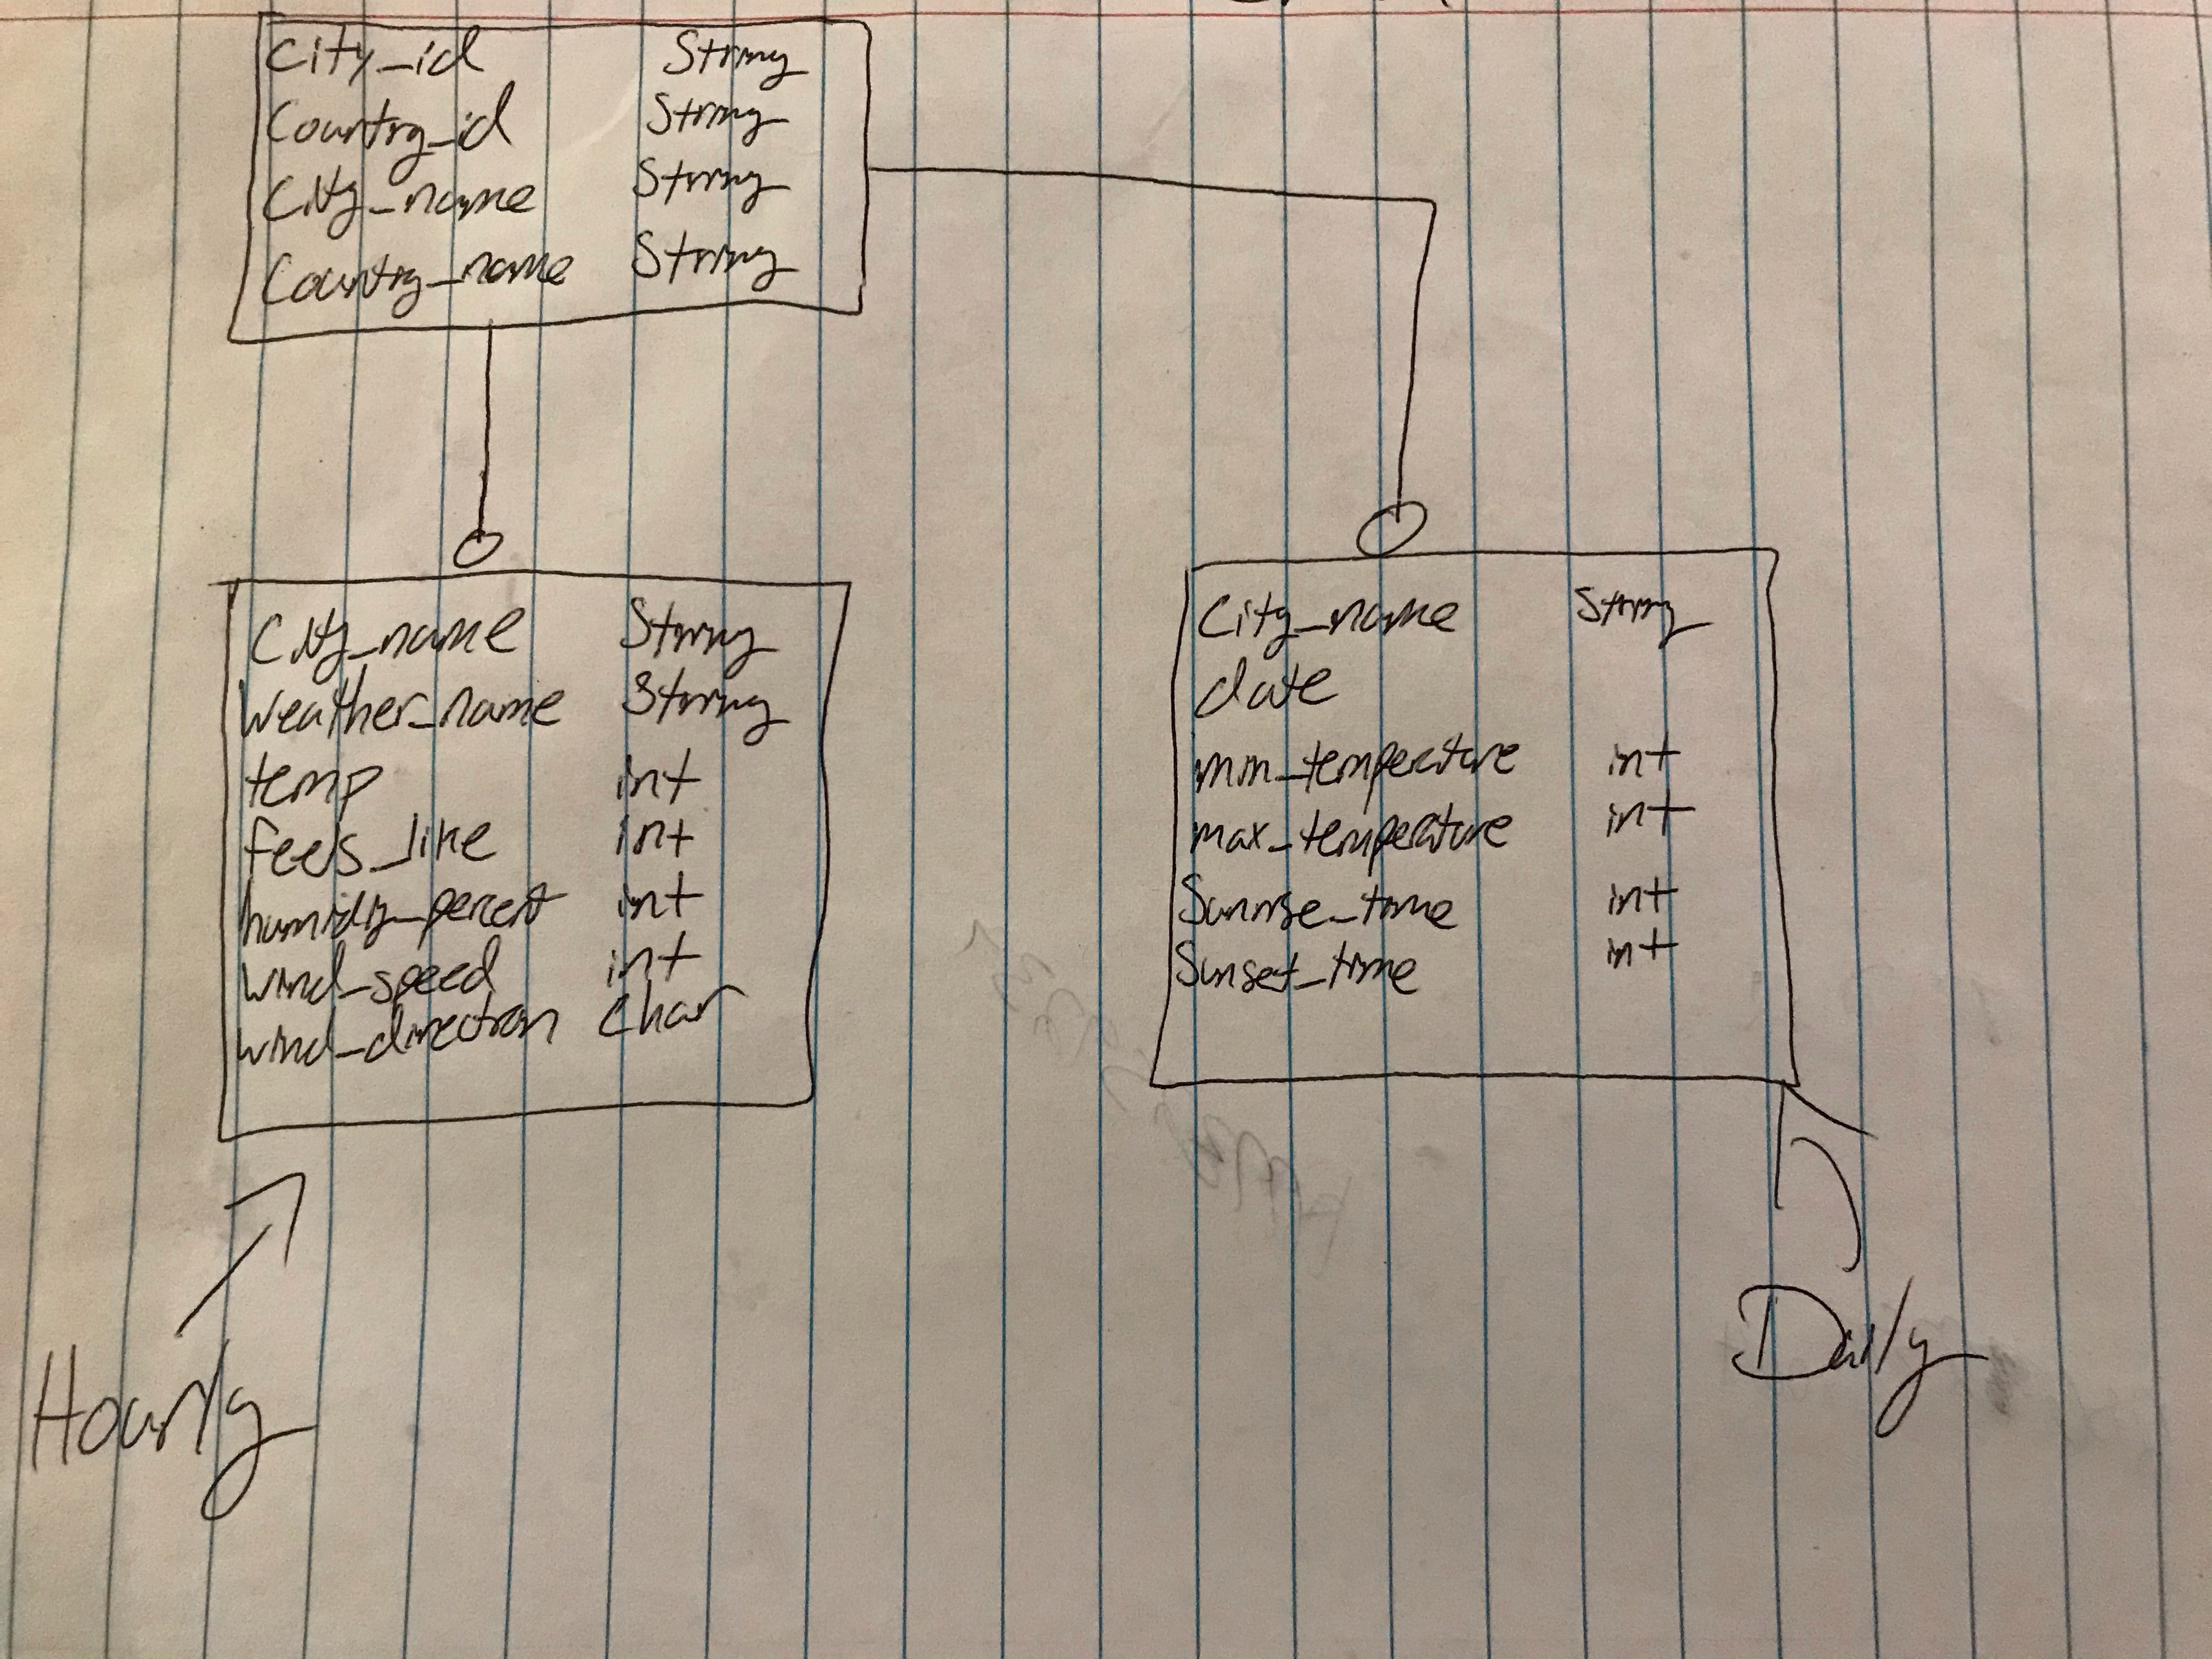 City_id String
Country_id String
City_name String
Country_name String
City_name String
weather_name String
temp int
feels_like int
humidity_percent int
wind_speed int
wind_direction char
City_name String
date
min_temperature int
max_temperature int
Sunrise_time int
Sunset_time int
Hourly
Daily